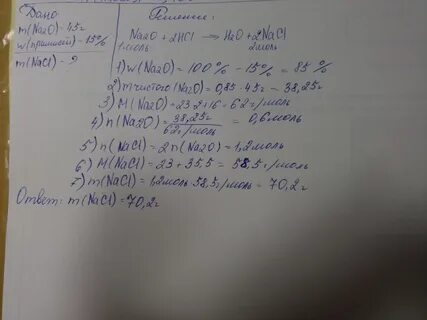 Дано:
m(Na2O) - 45г
w(примесей) - 15%
m(NaCl) - ?
Решение:
Na2O + 2HCl → H2O + 2NaCl
1моль 2моль
1) w(Na2O) = 100% - 15% = 85%
2) m чистого (Na2O) = 0,85 · 45г - 38,25г
3) M(Na2O) = 23·2+16 = 62г/моль
4) n(Na2O) = 38,25г / 62г/моль = 0,6моль
5) n(NaCl) = 2n(Na2O) = 1,2моль
6) M(NaCl) = 23 + 35,5 = 58,5г/моль
7) m(NaCl) = 1,2моль · 58,5г/моль = 70,2г
Ответ: m(NaCl) = 70,2г